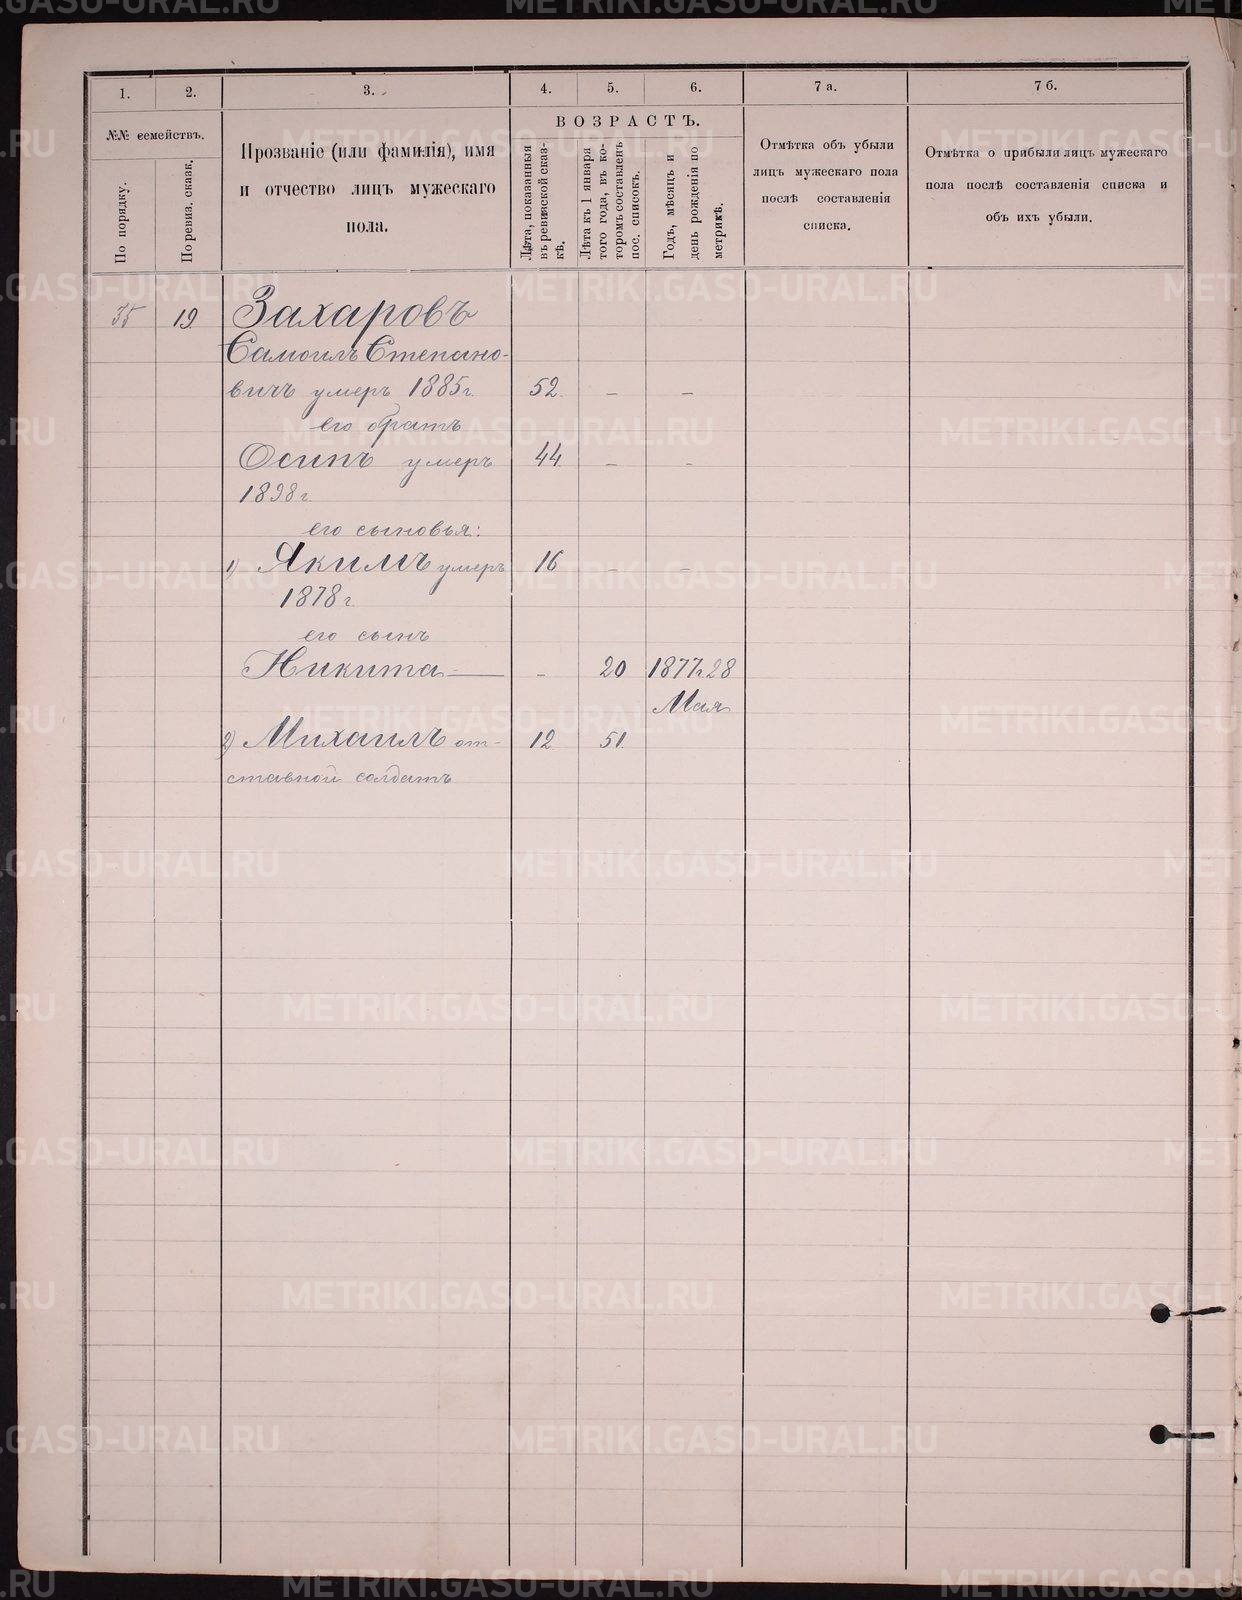 1.
2.
3.
4.
5.
6.
7 а.
7 б.
№№ семействъ.
По порядку.
По ревиз. сказк.
Прозваніе (или фамилія), имя
и отчество лицъ мужескаго
пола.
ВОЗРАСТЪ.
Лѣта, показанныя
въ ревизской сказ-
кѣ.
Лѣта къ 1 января
того года, въ ко-
торомъ составленъ
пос. списокъ.
Годъ, мѣсяцъ и
день рожденія по
метрикѣ.
Отмѣтка объ убыли
лицъ мужескаго пола
послѣ составленія
списка.
Отмѣтка о прибыли лицъ мужескаго
пола послѣ составленія списка и
объ ихъ убыли.
35 19 Захаровъ
Самоилъ Степано-
вичъ умеръ 1885 г. 52. – –
его братъ
Осипъ умеръ 44. – –
1898 г.
его сыновья:
1) Якимъ умеръ 16 – –
1878 г.
его сынъ
Никита — – 20 1877 г. 28
Мая
2) Михаилъ от- 12 51.
ставной солдатъ
METRIKI.GASO-URAL.RU